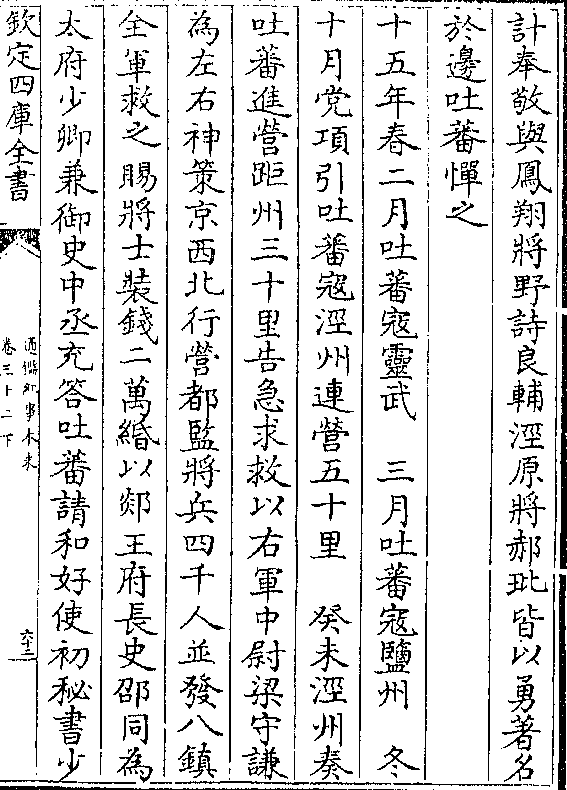 計奉敬與鳳翔將野詩良輔涇原將郝玼皆以勇著名
於邊吐蕃憚之
十五年春二月吐蕃寇靈武　三月吐蕃寇鹽州　冬
十月党項引吐蕃寇涇州連營五十里　癸未涇州奏
吐蕃進營距州三十里告急求救以右軍中尉梁守謙
為左右神策京西北行營都監將兵四千人並發八鎮
全軍救之賜將士裝錢二萬緡以郯王府長史邵同為
太府少卿兼御史中丞充答吐蕃請和好使初秘書少
欽定四庫全書
通鑑紀事本末
卷三十二下
六十三